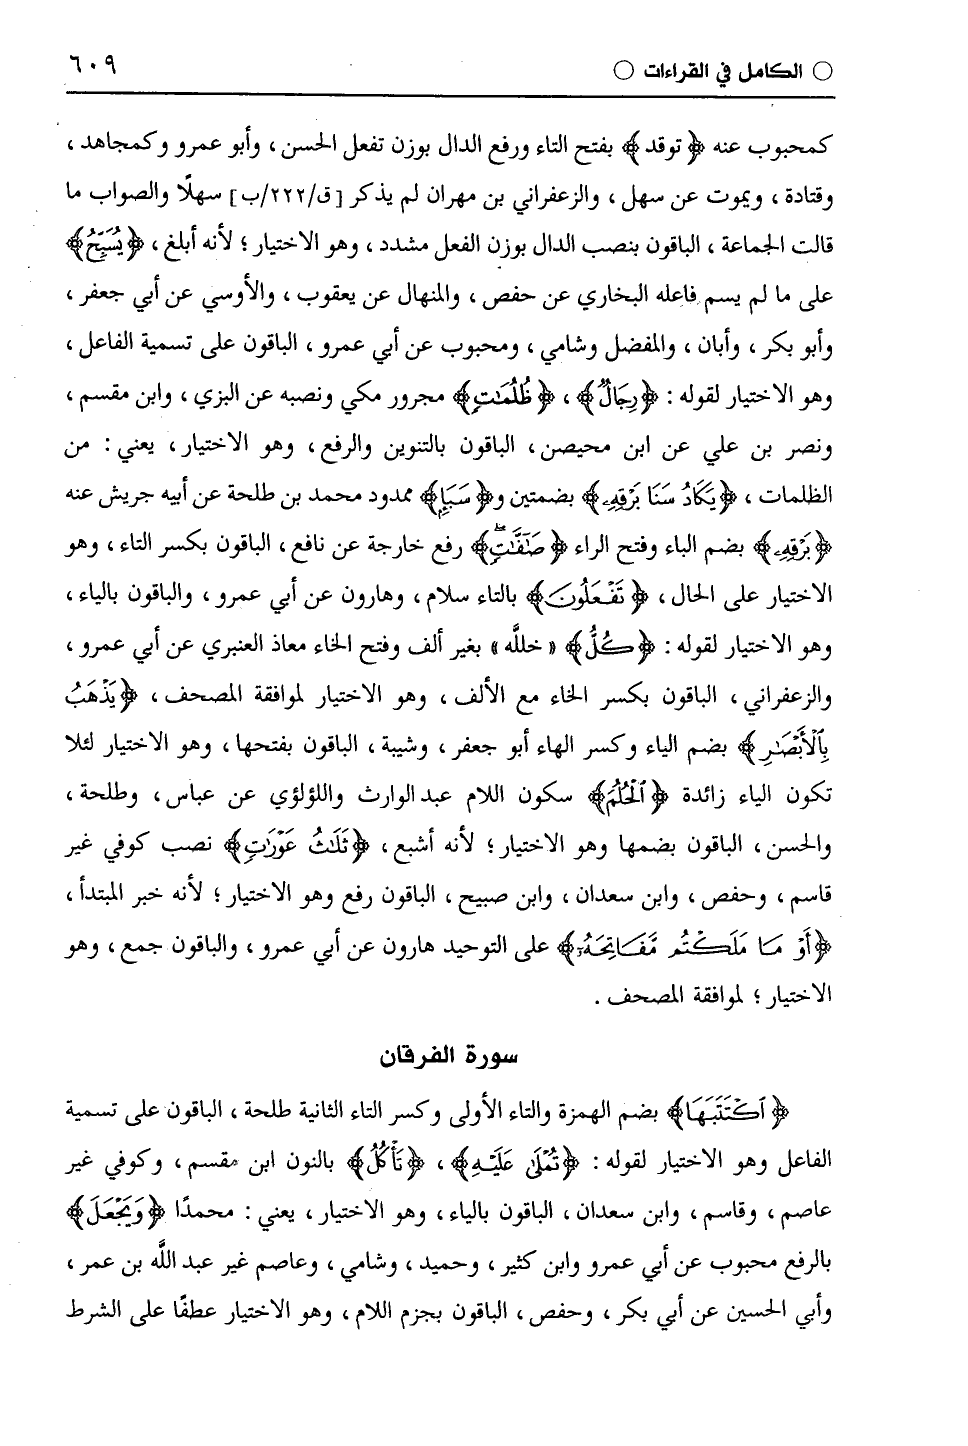 ○ الكامل في القراءات ○ ٦٠٩
كمحبوب عنه ﴿توقد﴾ بفتح التاء ورفع الدال بوزن تفعل الحسن، وأبو عمرو وكمجاهد،
وقتادة، ويموت عن سهل، والزعفراني بن مهران لم يذكر [ق/٢٢٢/ب] سهلًا والصواب ما
قالت الجماعة، الباقون بنصب الدال بوزن الفعل مشدد، وهو الاختيار؛ لأنه أبلغ، ﴿يُسَبِّحُ﴾
على ما لم يسم فاعله البخاري عن حفص، والمنهال عن يعقوب، والأوسي عن أبي جعفر،
وأبو بكر، وأبان، والمفضل وشامي، ومحبوب عن أبي عمرو، الباقون على تسمية الفاعل،
وهو الاختيار لقوله: ﴿رِجَالٌ﴾، ﴿ظُلُمَٰتٍ﴾ مجرور مكي ونصبه عن البزي، وابن مقسم،
ونصر بن علي عن ابن محيصن، الباقون بالتنوين والرفع، وهو الاختيار، يعني: من
الظلمات، ﴿يَكَادُ سَنَا بَرْقِهِۦ﴾ بضمتين و﴿سَبَإٍ﴾ ممدود محمد بن طلحة عن أبيه جريش عنه
﴿بَرْقِهِۦ﴾ بضم الباء وفتح الراء ﴿صَٰٓفَّٰتٍۖ﴾ رفع خارجة عن نافع، الباقون بكسر التاء، وهو
الاختيار على الحال، ﴿تَفْعَلُونَ﴾ بالتاء سلام، وهارون عن أبي عمرو، والباقون بالياء،
وهو الاختيار لقوله: ﴿كُلٌّ﴾ «خلله» بغير ألف وفتح الخاء معاذ العنبري عن أبي عمرو،
والزعفراني، الباقون بكسر الخاء مع الألف، وهو الاختيار لموافقة المصحف، ﴿يَذْهَبُ
بِٱلْأَبْصَٰرِ﴾ بضم الياء وكسر الهاء أبو جعفر، وشيبة، الباقون بفتحها، وهو الاختيار لئلا
تكون الياء زائدة ﴿ٱلْحُلُمَ﴾ سكون اللام عبد الوارث واللؤلؤي عن عباس، وطلحة،
والحسن، الباقون بضمها وهو الاختيار؛ لأنه أشبع، ﴿ثَلَٰثُ عَوْرَٰتٍ﴾ نصب كوفي غير
قاسم، وحفص، وابن سعدان، وابن صبيح، الباقون رفع وهو الاختيار؛ لأنه خبر المبتدأ،
﴿أَوْ مَا مَلَكْتُم مَّفَاتِحَهُۥٓ﴾ على التوحيد هارون عن أبي عمرو، والباقون جمع، وهو
الاختيار؛ لموافقة المصحف.
سورة الفرقان
﴿ٱكْتَتَبَهَا﴾ بضم الهمزة والتاء الأولى وكسر التاء الثانية طلحة، الباقون على تسمية
الفاعل وهو الاختيار لقوله: ﴿تُمْلَىٰ عَلَيْهِ﴾، ﴿نَأْكُلُ﴾ بالنون ابن مقسم، وكوفي غير
عاصم، وقاسم، وابن سعدان، الباقون بالياء، وهو الاختيار، يعني: محمدًا ﴿وَيَجْعَلَ﴾
بالرفع محبوب عن أبي عمرو وابن كثير، وحميد، وشامي، وعاصم غير عبد اللَّه بن عمر،
وأبي الحسين عن أبي بكر، وحفص، الباقون بجزم اللام، وهو الاختيار عطفًا على الشرط